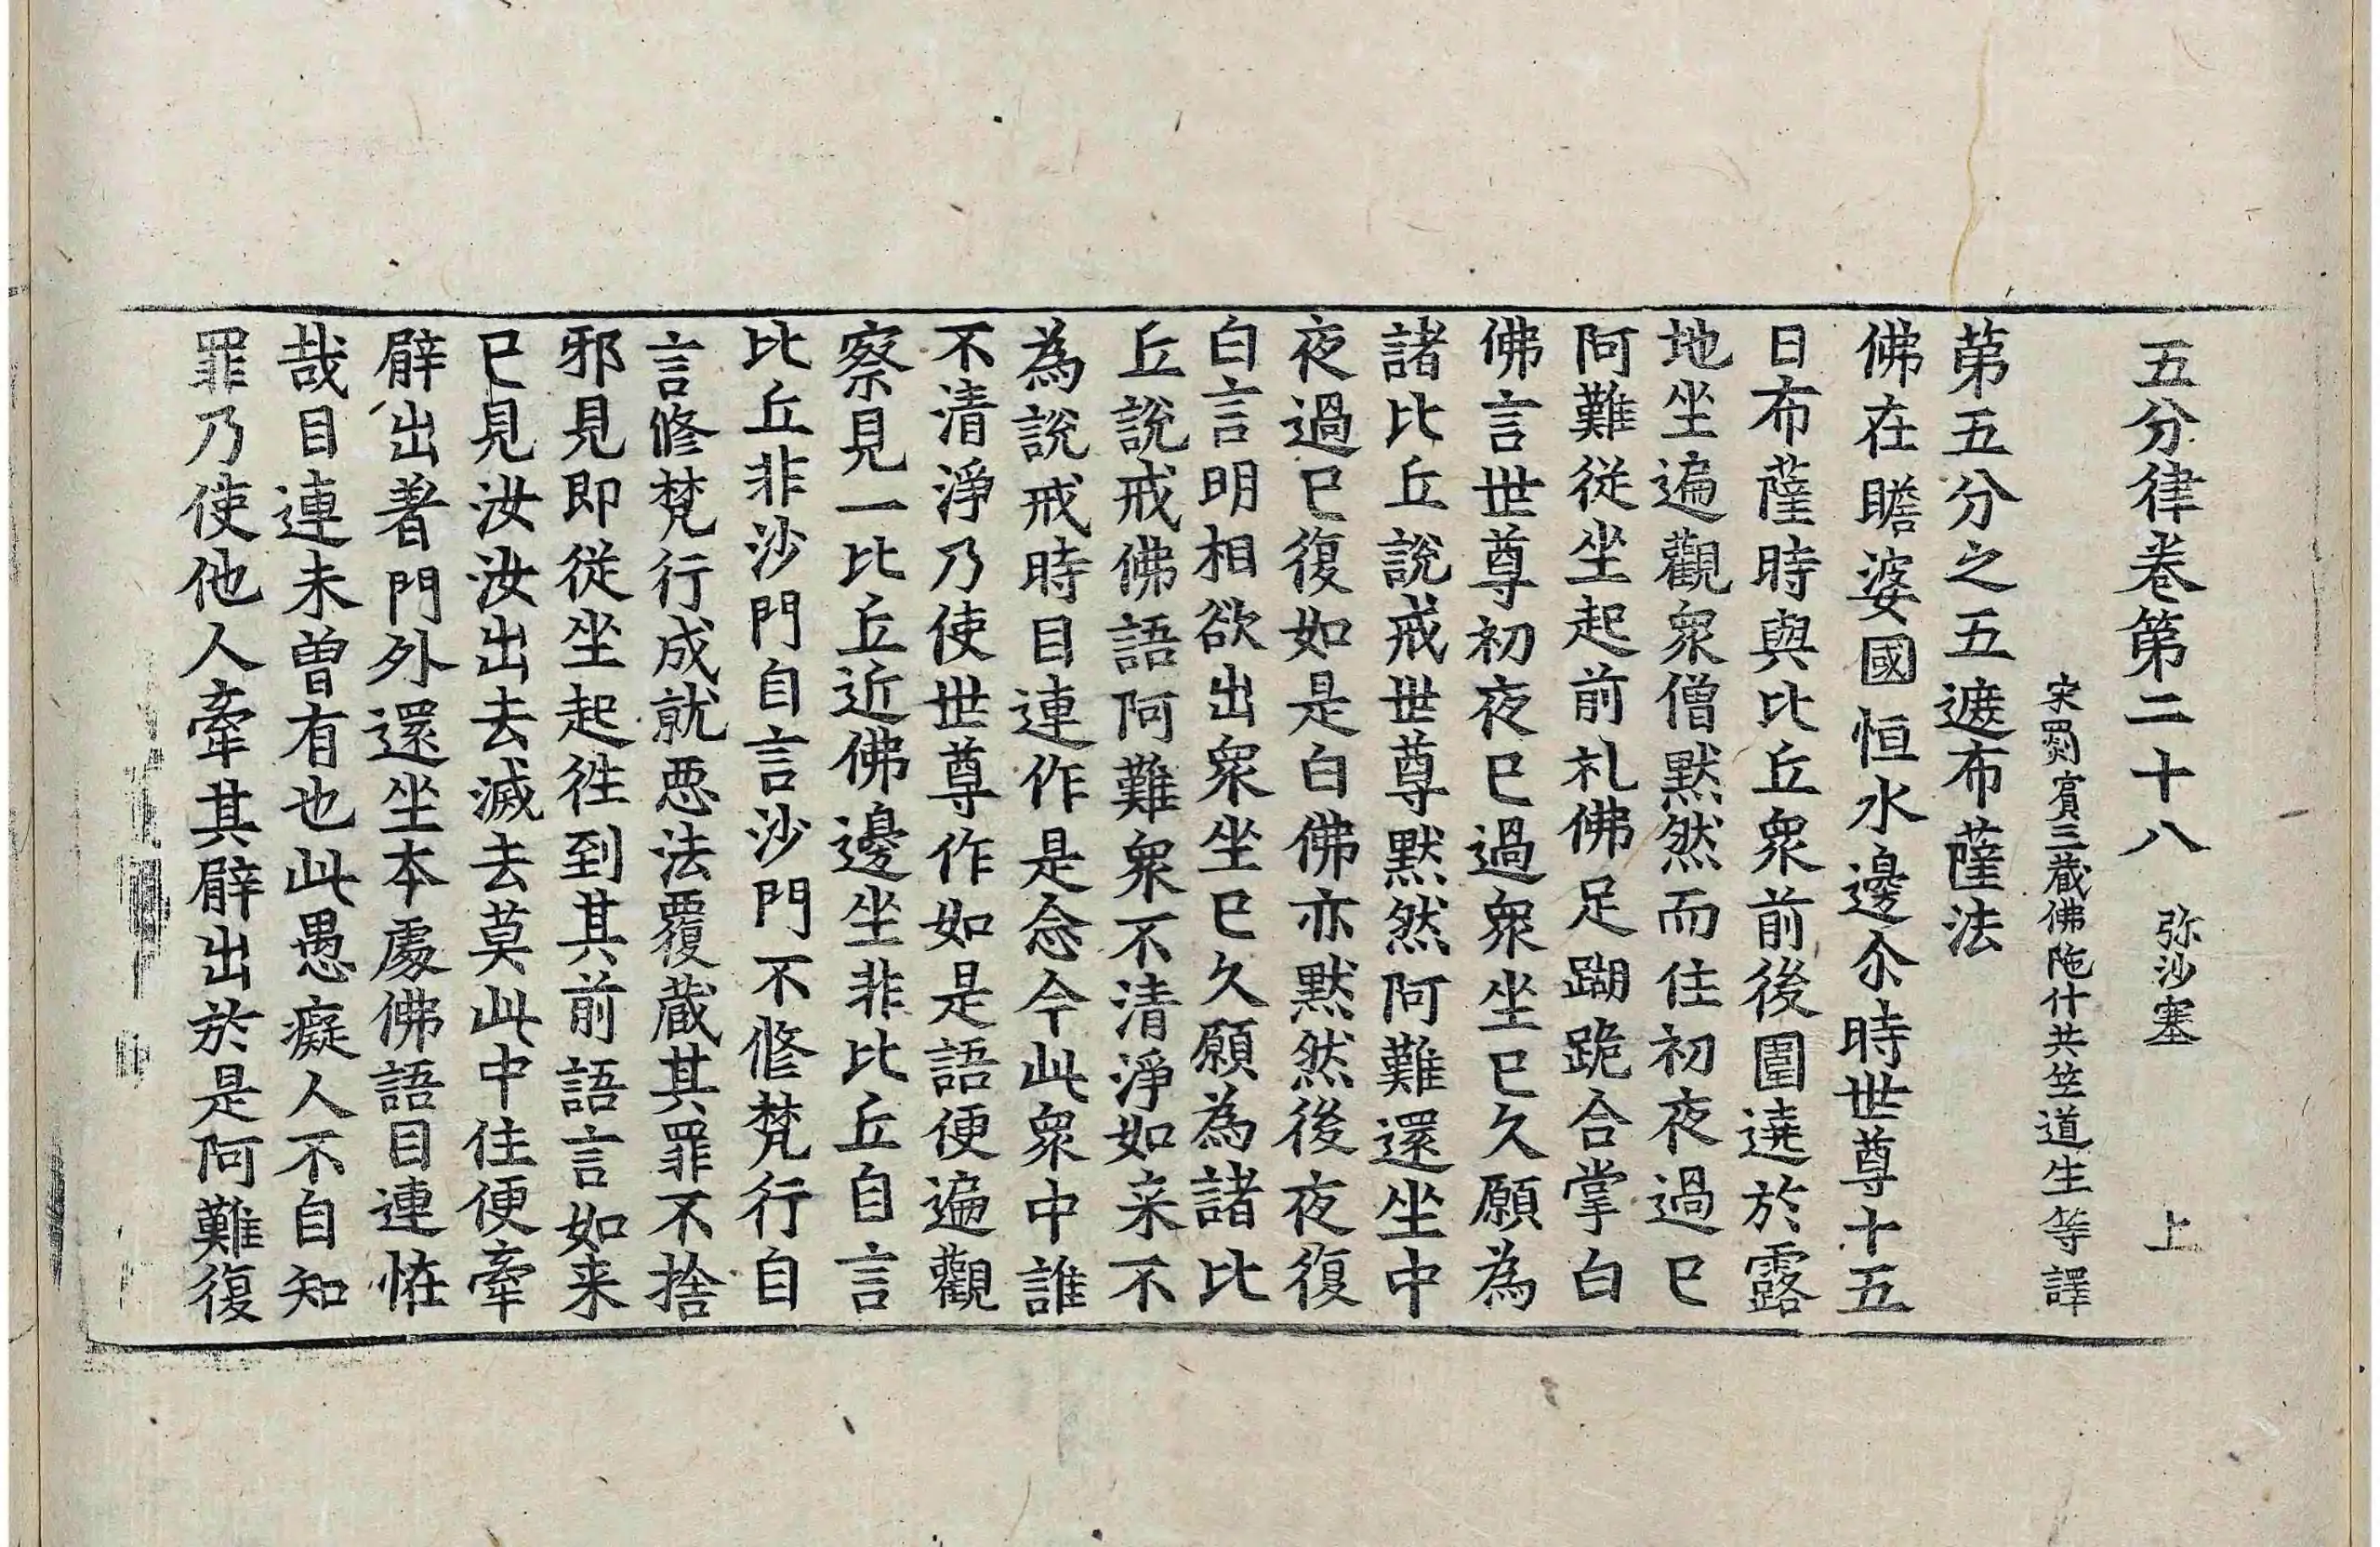 五分律卷第二十八 弥沙塞 上
宋罽賔三藏佛陁什共竺道生等譯
第五分之五遮布薩法
佛在瞻婆國恒水邊尒時世尊十五
日布薩時與比丘衆前後圍遶於露
地坐遍觀衆僧默然而住初夜過已
阿難從坐起前礼佛足䠒跪合掌白
佛言世尊初夜已過衆坐已久願為
諸比丘說戒世尊默然阿難還坐中
夜過已復如是白佛亦默然後夜復
白言明相欲出衆坐已久願為諸比
丘說戒佛語阿難衆不清淨如来不
為說戒時目連作是念今此衆中誰
不清淨乃使世尊作如是語便遍觀
察見一比丘近佛邊坐非比丘自言
比丘非沙門自言沙門不修梵行自
言修梵行成就惡法覆藏其罪不捨
邪見即從坐起往到其前語言如来
已見汝汝出去滅去莫此中住便牽
臂出著門外還坐本處佛語目連恠
哉目連未曽有也此愚癡人不自知
罪乃使他人牽其臂出於是阿難復